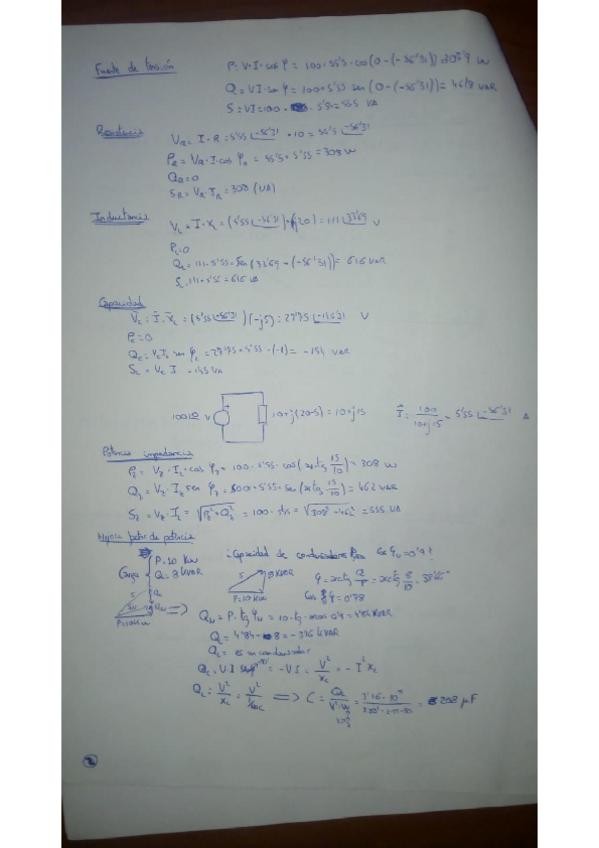 Fuente de tensión
P = V·I·cos φ = 100·5'55·cos(0-(-56'31)) 308'9 W
Q = VI·sen φ = 100·5'55 sen(0-(-56'31)) = 461'8 VAR
S = VI = 100· 5'55 = 555 VA
Resistencia
V_R = I·R = 5'55 |-56'31 · 10 = 55'5 |-56'31
P_R = V_R·I·cos φ_R = 55'5·5'55 = 308 W
Q_R = 0
S_R = V_R·I_R = 308 (VA)
Inductancia
V_L = I·X_L = (5'55 |-56'31)·(j20) = 111 |33'69 V
P_L = 0
Q_L = 111·5'55·Sen(33'69-(-56'31)) = 616 VAR
S_L 111·5'55 = 616 VA
Capacidad
V_c = I·X_c = (5'55 |-56'31)(-j5) = 27'75 |-146'31 V
P_c = 0
Q_c = V_c I_c sen φ_c = 27'75·5'55·(-1) = -154 VAR
S_c = V_c I
100 |0 V
10+j(20-5) = 10+j15
I = 100/(10+j15) = 5'55 |-56'31 A
Potencia impedancia
P_z = V_z·I_z·cos φ_z = 100·5'55·cos(arctg 15/10) = 308 W
Q_z = V_z·I_z sen φ_z = 100·5'55·sen(arctg 15/10) = 462 VAR
S_z = V_z·I_z = √(P_z²+Q_z²) = 100·5'55 = √(308²+462²) = 555 VA
Mejora factor de potencia
Carga
P = 10 kW
Q = 8 kVAR
¿Capacidad de condensadores para cos φ_N = 0'9?
S
8 kVAR
P=10kW
φ = arctg Q/P = arctg 8/10 = 38'66°
Cos φ = 0'78
S
Q_c
P=10kW
=> Q_N = P·tg φ_N = 10·tg· arcos 0'9 = 4'84 kVAR
Q_c = 4'84-8 = -3'16 kVAR
Q_c = es un condensador
Q_c = V·I sen -90° = -VI = V²/X_c = -I² X_c
Q_c = V²/X_c = V²/(1/ωC) => C = Q_c/(V²·ω) = = 208 μF
2